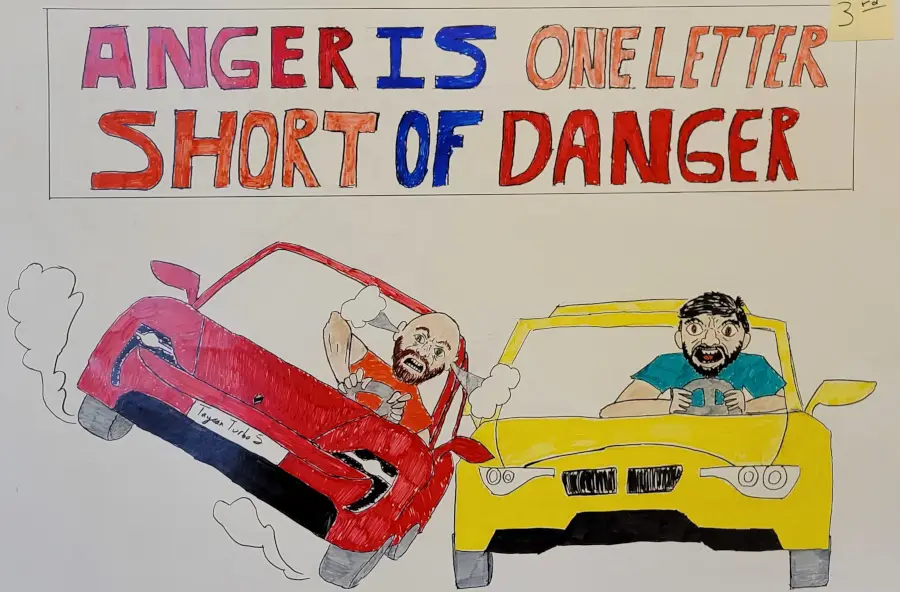 3rd
ANGER IS ONE LETTER
SHORT OF DANGER
Taycan Turbo S